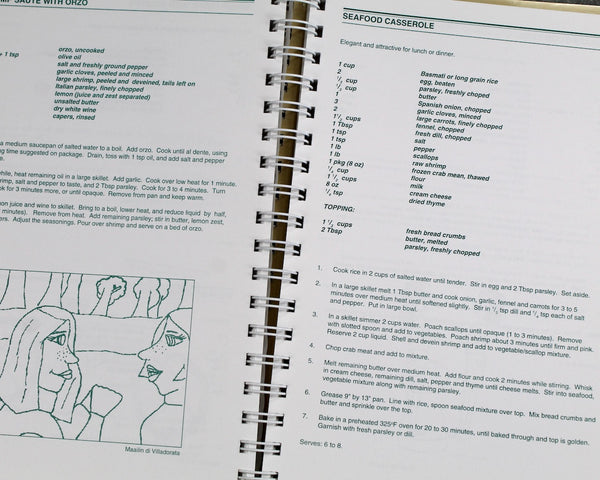 MP SAUTÉ WITH ORZO
orzo, uncooked
+ 1 tsp olive oil
salt and freshly ground pepper
garlic cloves, peeled and minced
large shrimp, peeled and deveined, tails left on
Italian parsley, finely chopped
lemon (juice and zest separated)
unsalted butter
dry white wine
capers, rinsed
a medium saucepan of salted water to a boil. Add orzo. Cook until al dente, using
ng time suggested on package. Drain, toss with 1 tsp oil, and add salt and pepper
e.
while, heat remaining oil in a large skillet. Add garlic. Cook over low heat for 1 minute.
hrimp, salt and pepper to taste, and 2 Tbsp parsley. Cook for 3 to 4 minutes. Turn
ok for 3 minutes more, or until opaque. Remove from pan and keep warm.
on juice and wine to skillet. Bring to a boil, lower heat, and reduce liquid by half,
minutes). Remove from heat. Add remaining parsley; stir in butter, lemon zest,
ers. Adjust the seasonings. Pour over shrimp and serve on a bed of orzo.
Maailin di Villadorata
SEAFOOD CASSEROLE
Elegant and attractive for lunch or dinner.
1 cup Basmati or long grain rice
2 egg, beaten
1/2 cup parsley, freshly chopped
1/2 cup butter
1 Spanish onion, chopped
3 garlic cloves, minced
2 large carrots, finely chopped
1 1/2 cups fennel, chopped
1 Tbsp fresh dill, chopped
1 tsp salt
1 tsp pepper
1 lb scallops
1 lb raw shrimp
1 pkg (8 oz) frozen crab mean, thawed
1/4 cup flour
1 1/2 cups milk
8 oz cream cheese
1/4 tsp dried thyme
TOPPING:
1 1/2 cups fresh bread crumbs
2 Tbsp butter, melted
parsley, freshly chopped
1. Cook rice in 2 cups of salted water until tender. Stir in egg and 2 Tbsp parsley. Set aside.
2. In a large skillet melt 1 Tbsp butter and cook onion, garlic, fennel and carrots for 3 to 5
minutes over medium heat until softened slightly. Stir in 1/2 tsp dill and 1/4 tsp each of salt
and pepper. Put in large bowl.
3. In a skillet simmer 2 cups water. Poach scallops until opaque (1 to 3 minutes). Remove
with slotted spoon and add to vegetables. Poach shrimp about 3 minutes until firm and pink.
Reserve 2 cup liquid. Shell and devein shrimp and add to vegetable/scallop mixture.
4. Chop crab meat and add to mixture.
5. Melt remaining butter over medium heat. Add flour and cook 2 minutes while stirring. Whisk
in cream cheese, remaining dill, salt, pepper and thyme until cheese melts. Stir into seafood,
vegetable mixture along with remaining parsley.
6. Grease 9" by 13" pan. Line with rice, spoon seafood mixture over top. Mix bread crumbs and
butter and sprinkle over the top.
7. Bake in a preheated 325°F oven for 20 to 30 minutes, until baked through and top is golden.
Garnish with fresh parsley or dill.
Serves: 6 to 8.